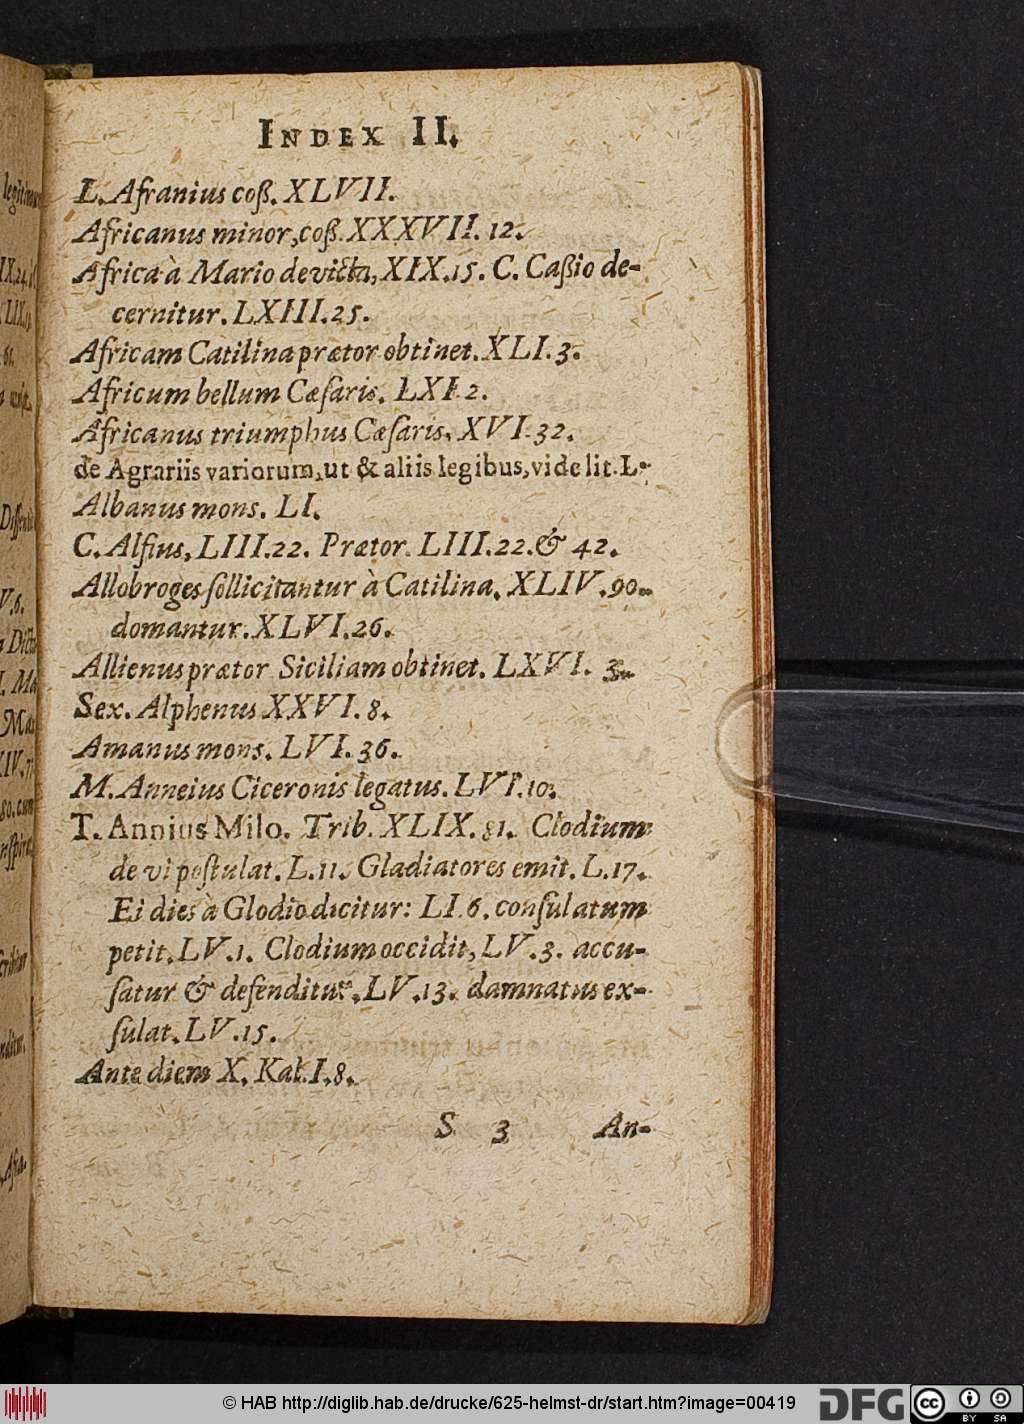 INDEX II.
L. Afranius coß. XLVII.
Africanus minor, coß. XXXVII. 12.
Africa à Mario devicta, XIX. 15. C. Caßio de-
cernitur. LXIII. 25.
Africam Catilina prætor obtinet. XLI. 3.
Africum bellum Cæſaris. LXI. 2.
Africanus triumphus Cæſaris. XVI. 32.
de Agrariis variorum, ut & aliis legibus, vide lit. L.
Albanus mons. LI.
C. Alfius, LIII. 22. Prætor. LIII. 22. & 42.
Allobroges ſollicitantur à Catilina. XLIV. 90.
domantur. XLVI. 26.
Allienus prætor Siciliam obtinet. LXVI. 3.
Sex. Alphenus XXVI. 8.
Amanus mons. LVI. 36.
M. Anneius Ciceronis legatus. LVI. 10.
T. Annius Milo. Trib. XLIX. 81. Clodium
de vi poſtulat. L. 11. Gladiatores emit. L. 17.
Ei dies à Glodio dicitur: LI. 6. conſulatum
petit. LV. 1. Clodium occidit, LV. 3. accu-
ſatur & defenditur. LV. 13. damnatus ex-
ſulat. LV. 15.
Ante diem X. Kal. I. 8.
S 3 An-
© HAB http://diglib.hab.de/drucke/625-helmst-dr/start.htm?image=00419
DFG
cc BY SA